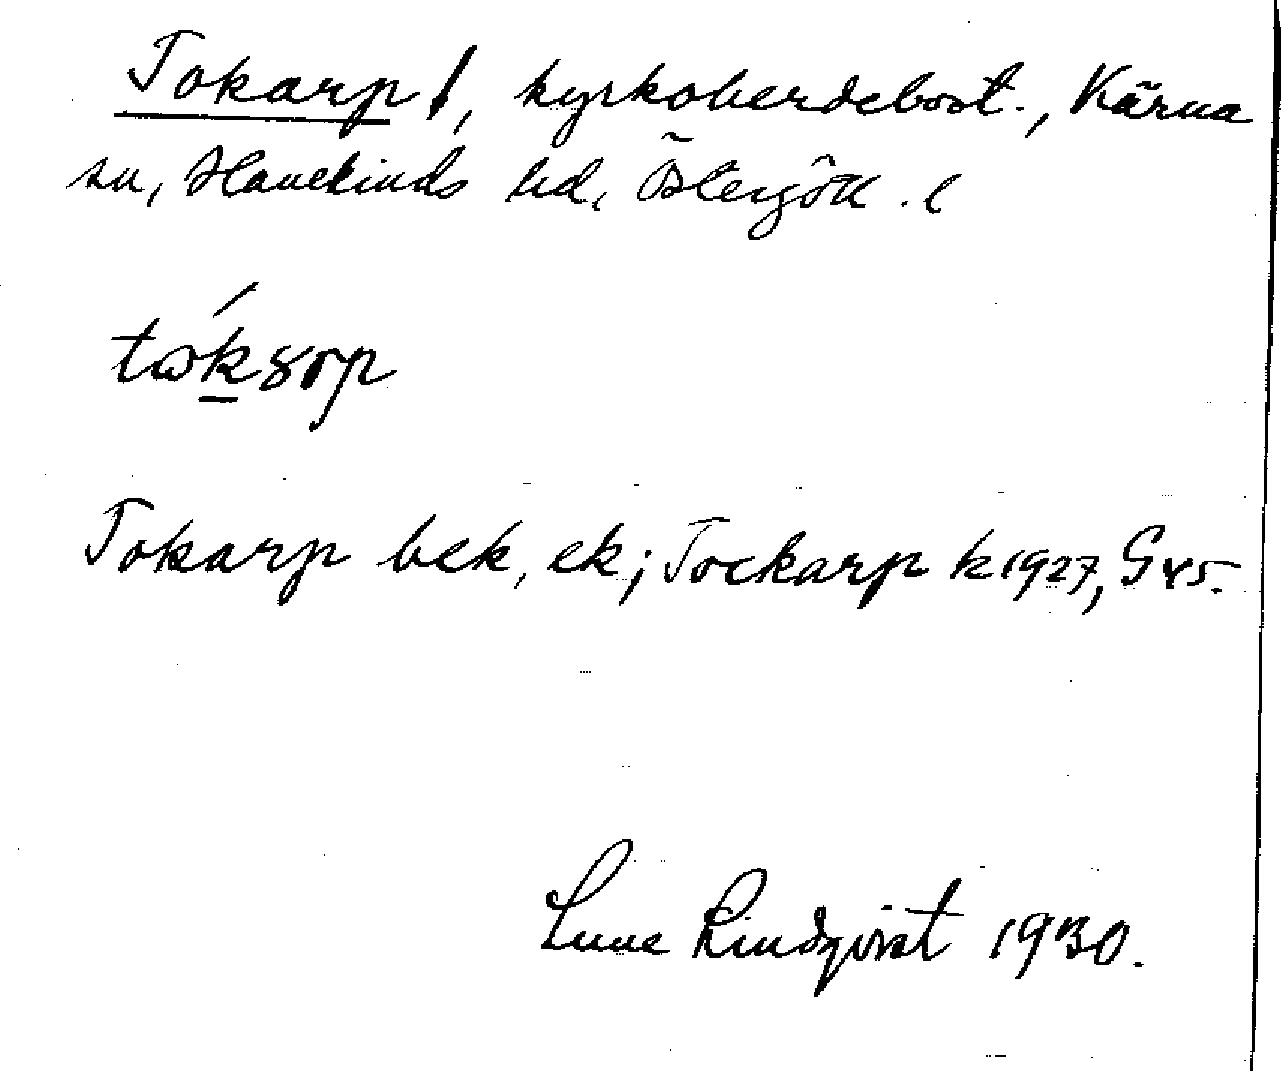 Tokarp /, kyrkoherdebost., Kärna
sn, Hanekinds hd, Östergötl. l
tωk̲ȣrp
Tokarp bek, ek; Tockarp k 1927, G 45.
Sune Lindqvist 1930.